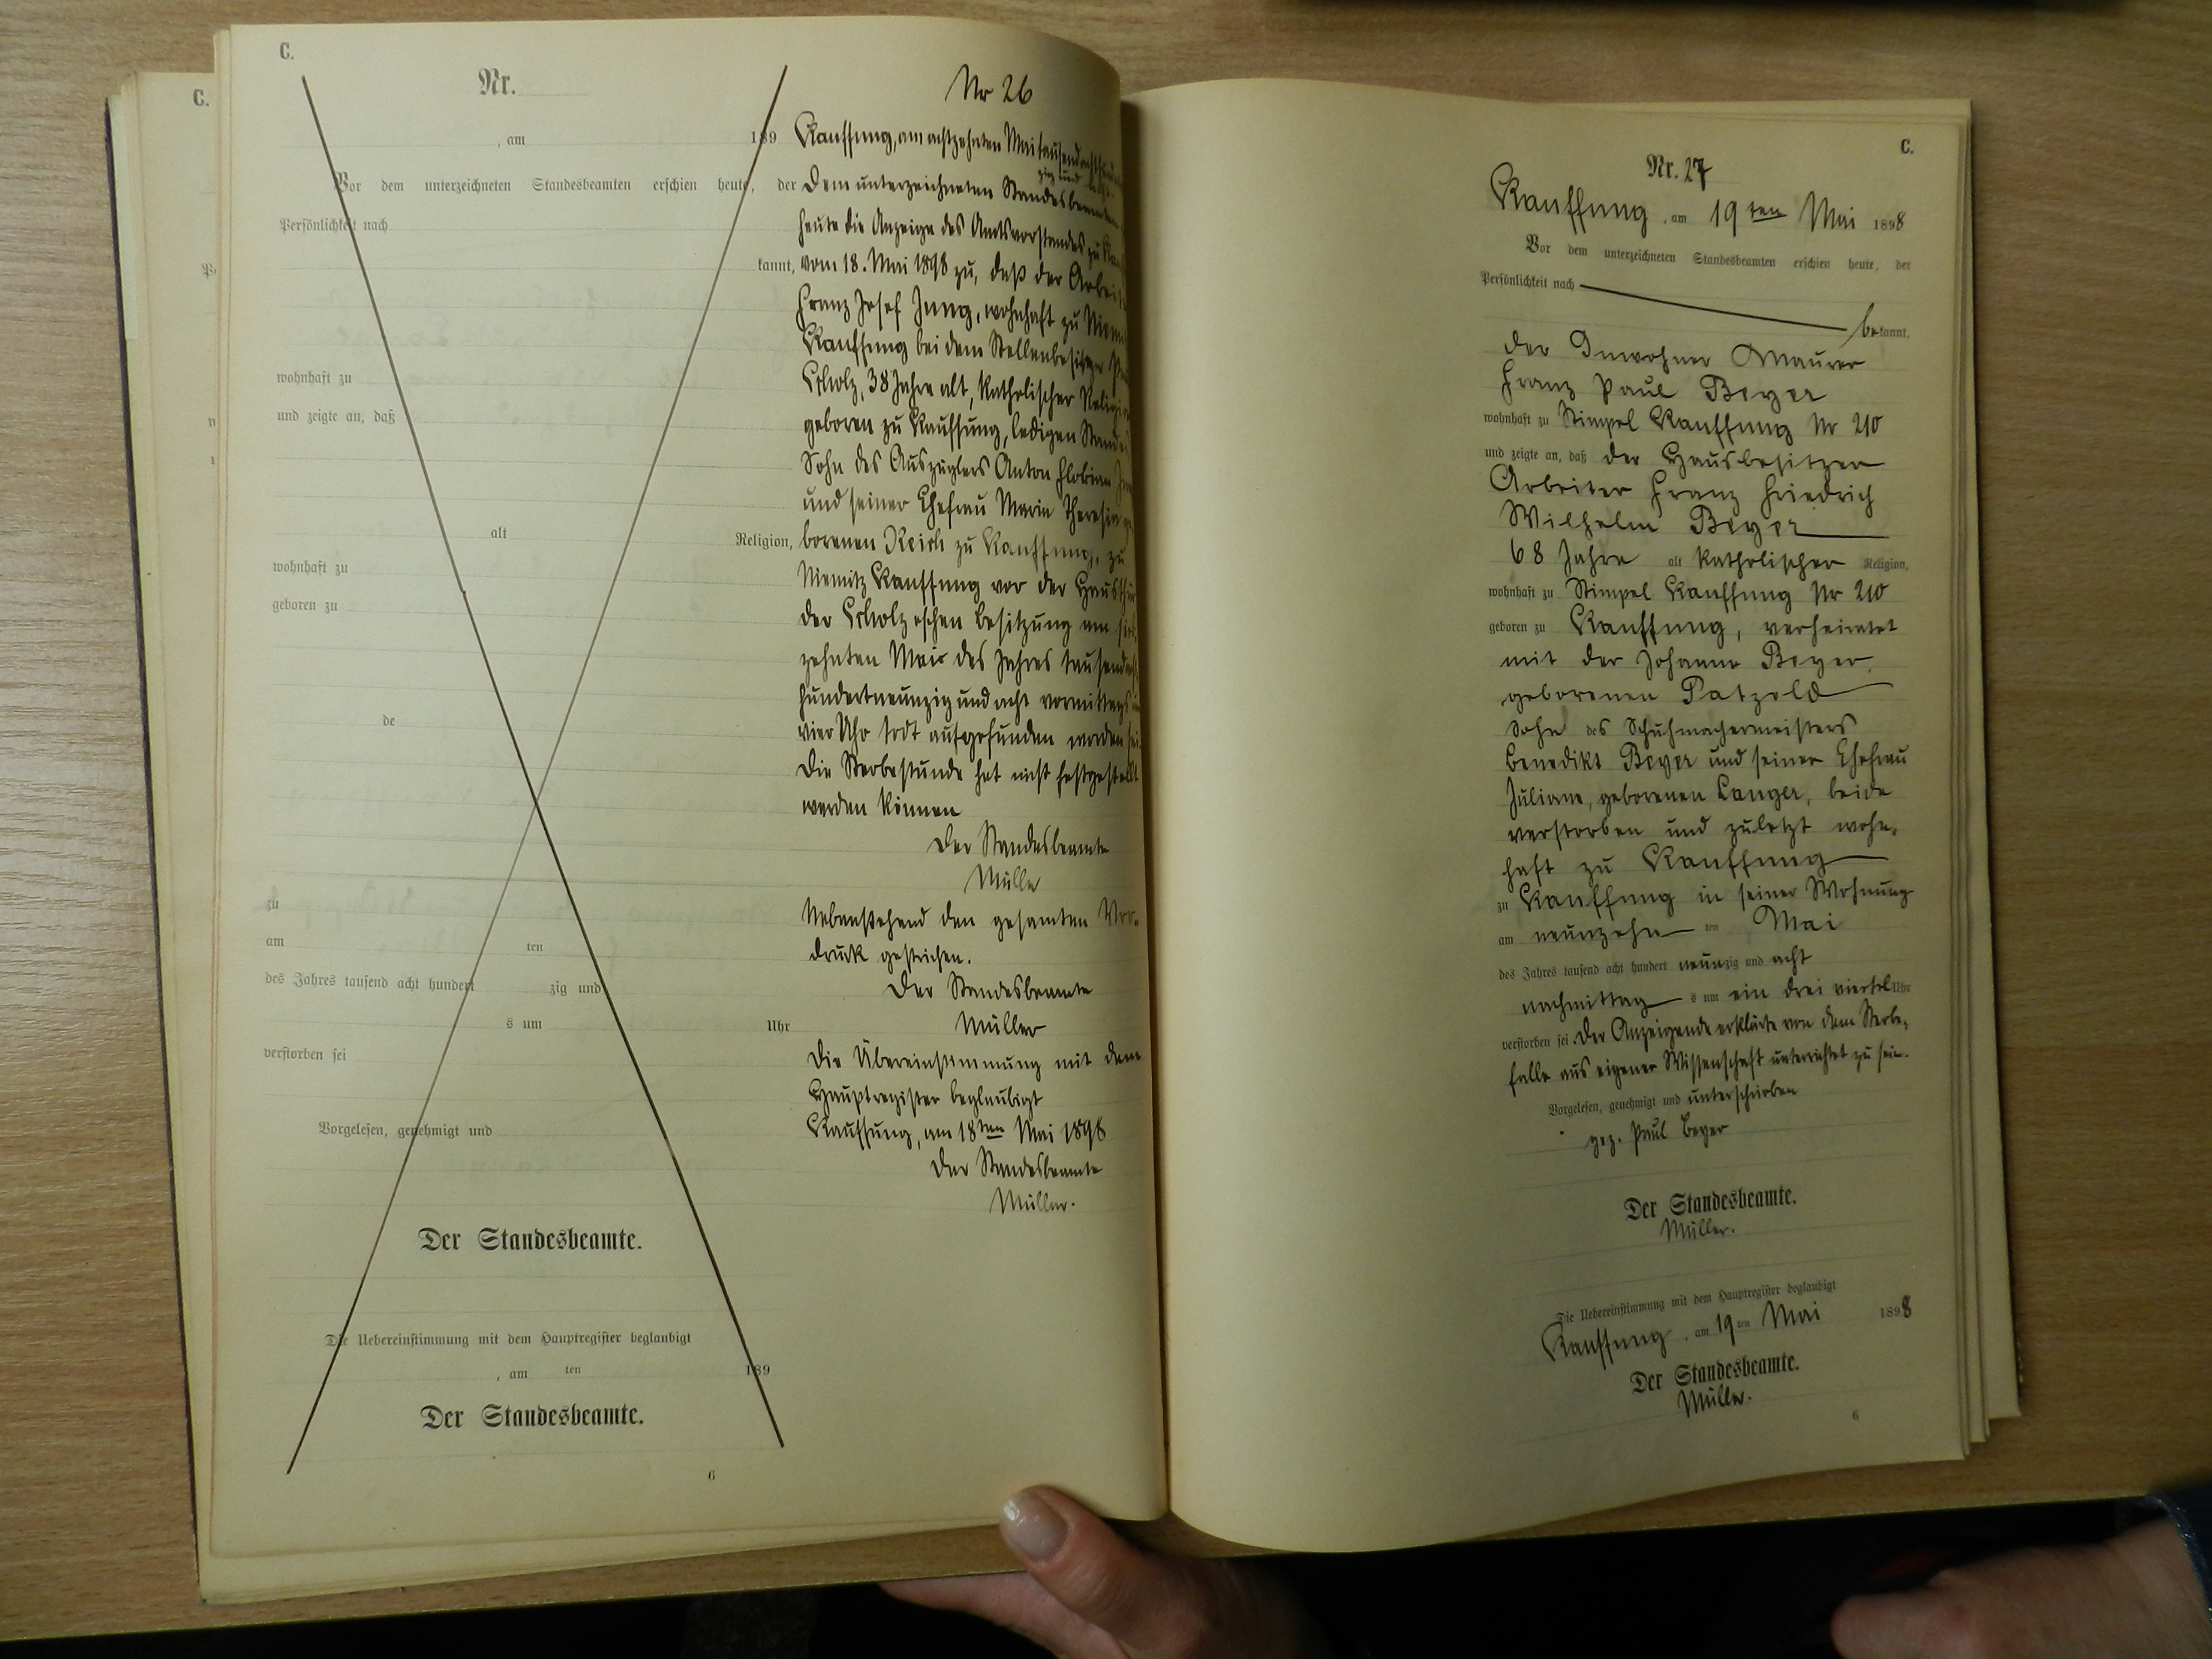 C.
C.
Nr.
, am 189
Vor dem unterzeichneten Standesbeamten erschien heute, der
Persönlichkeit nach
kannt,
wohnhaft zu
und zeigte an, daß
alt Religion,
wohnhaft zu
geboren zu
de
zu
am ten
des Jahres tausend acht hundert zig und
s um Uhr
verstorben sei
Vorgelesen, genehmigt und
Der Standesbeamte.
Die Uebereinstimmung mit dem Hauptregister beglaubigt
, am ten 189
Der Standesbeamte.
6
Nr 26
Kauffung, am achtzehnten Mai
zig und acht.
Dem unterzeichneten Standesbeamten
heute die Anzeige des Amtsvorstandes zu
vom 18. Mai 1898 zu, daß der
Franz Josef Jung, wohnhaft zu
Kauffung bei dem Stellenbesitzer
Scholz, 38 Jahre alt, katholischer
geboren zu Kauffung, ledigen
Sohn des Auszüglers Anton Florian
und seiner Ehefrau Maria Theresia
borenen zu Kauffung, zu
Niemitz Kauffung vor der
der Scholzeschen Besitzung am
zehnten Mai des Jahres
hundertneunzig und acht vormittags
vier Uhr todt aufgefunden worden sei.
Die Sterbestunde hat nicht festgestellt
werden können
Der Standesbeamte
Müller
Nebenstehend den gesamten Vor-
druck gestrichen.
Der Standesbeamte
Müller
Die Übereinstimmung mit dem
Hauptregister beglaubigt
Kauffung, am 18ten Mai 1898
Der Standesbeamte
Müller.
C.
Nr. 27
Kauffung, am 19ten Mai 1898
Vor dem unterzeichneten Standesbeamten erschien heute, der
Persönlichkeit nach
bekannt,
der Inwohner Maurer
Franz Paul Beyer
wohnhaft zu Stimpel Kauffung Nr 210
und zeigte an, daß der Hausbesitzer
Arbeiter Franz Friedrich
Wilhelm Beyer
68 Jahre alt katholischer Religion,
wohnhaft zu Stimpel Kauffung Nr 210
geboren zu Kauffung, verheiratet
mit der Johanne Beyer,
geborenen Patzold
Sohn des Schuhmachermeisters
Benedikt Beyer und seiner Ehefrau
Juliane, geborenen Langer, beide
verstorben und zuletzt wohn-
haft zu Kauffung
zu Kauffung in seiner Wohnung
am neunzehn ten Mai
des Jahres tausend acht hundert neunzig und acht
nachmittags um ein drei viertel Uhr
verstorben sei. Der Anzeigende erklärte von dem Sterbe-
falle aus eigener Wissenschaft unterrichtet zu sein.
Vorgelesen, genehmigt und unterschrieben
gez. Paul Beyer
Der Standesbeamte.
Müller.
Die Uebereinstimmung mit dem Hauptregister beglaubigt
Kauffung, am 19ten Mai 1898
Der Standesbeamte.
Müller.
6